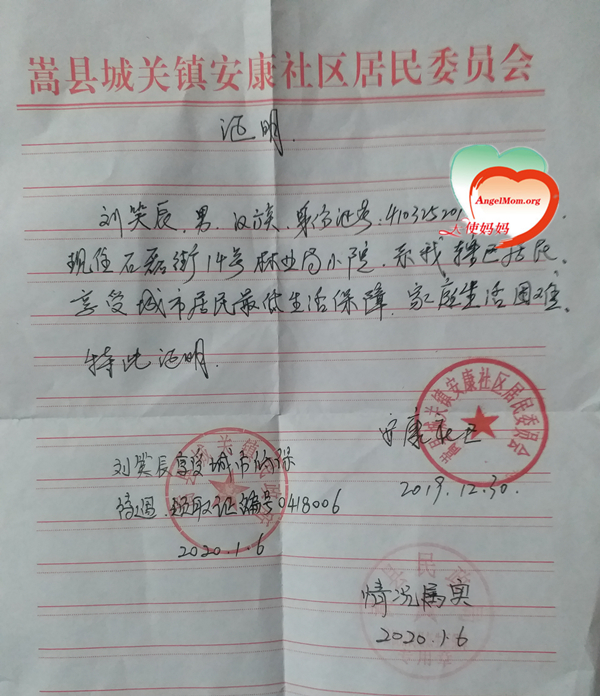 嵩县城关镇安康社区居民委员会
证明.
刘笑辰,男,汉族,身份证号:410325201
AngelMom.org
天使妈妈
现住石磊街14号林业局小院,系我辖区居民.
享受城市居民最低生活保障,家庭生活困难。
特此证明.
嵩县城关镇安康社区居民委员会
安康社区
2019.12.30.
刘笑辰享受城市低保
待遇.领取证编号0418006
2020.1.6
城关镇
县民政
情况属实
2020.1.6